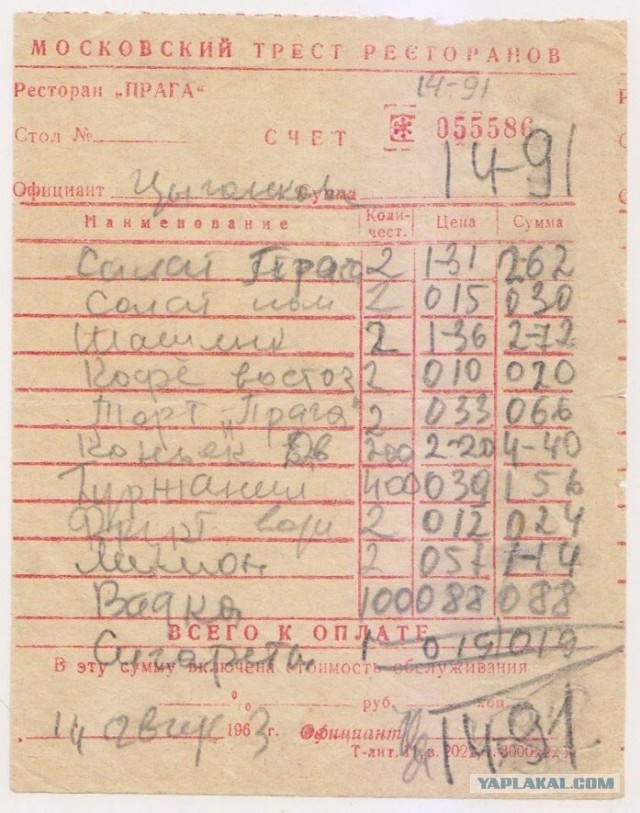 МОСКОВСКИЙ ТРЕСТ РЕСТОРАНОВ
Ресторан „ПРАГА“ 14-91
Стол № СЧЕТ 055586
Официант Сумма 14-91
Наименование Коли-чест. Цена Сумма
Салат Прага 2 1-31 2-62
Салат пом 2 015 030
Шашлык 2 1-36 2-72
Кофе восточ 2 010 020
Торт „Прага“ 2 033 066
Коньяк 200 2-20 4-40
Гуржаани 400 039 156
Фрукт вода 2 012 024
Лимон 2 057 1-14
Водка 100 088 088
ВСЕГО К ОПЛАТЕ
Сигареты 1 019 019
В эту сумму включена стоимость обслуживания
% руб. коп.
14 август 1963 г. Официант 14-91
YAPLAKAL.COM